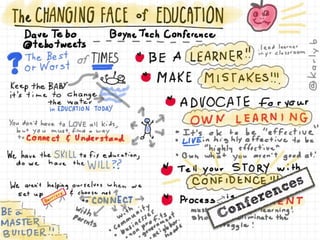 The CHANGING FACE of EDUCATION
Dave Tebo
@tebotweets
Boyne Tech Conference
? The Best
or Worst
of TIMES
Keep the BABY
it's time to change
the water
in EDUCATION TODAY
You don't have to LOVE all kids,
but you must find a way
to Connect & Understand
We have the SKILL to fix education,
do we have the WILL??
We aren't helping ourselves when we
set up
& choose not
to CONNECT
With
Parents
with
community
BE A
MASTER
BUILDER!!
lead learner
in yr classroom
@karlyb
BE A LEARNER!!
MAKE MISTAKES!!!
ADVOCATE for your
OWN LEARNING
It's ok to be "effective"
LIVE in highly effective to be
"highly effective"
Own what you aren't good at
Tell your STORY with
CONFIDENCE!!!
Process is
must
learning!
show
the
struggle!
Conferences